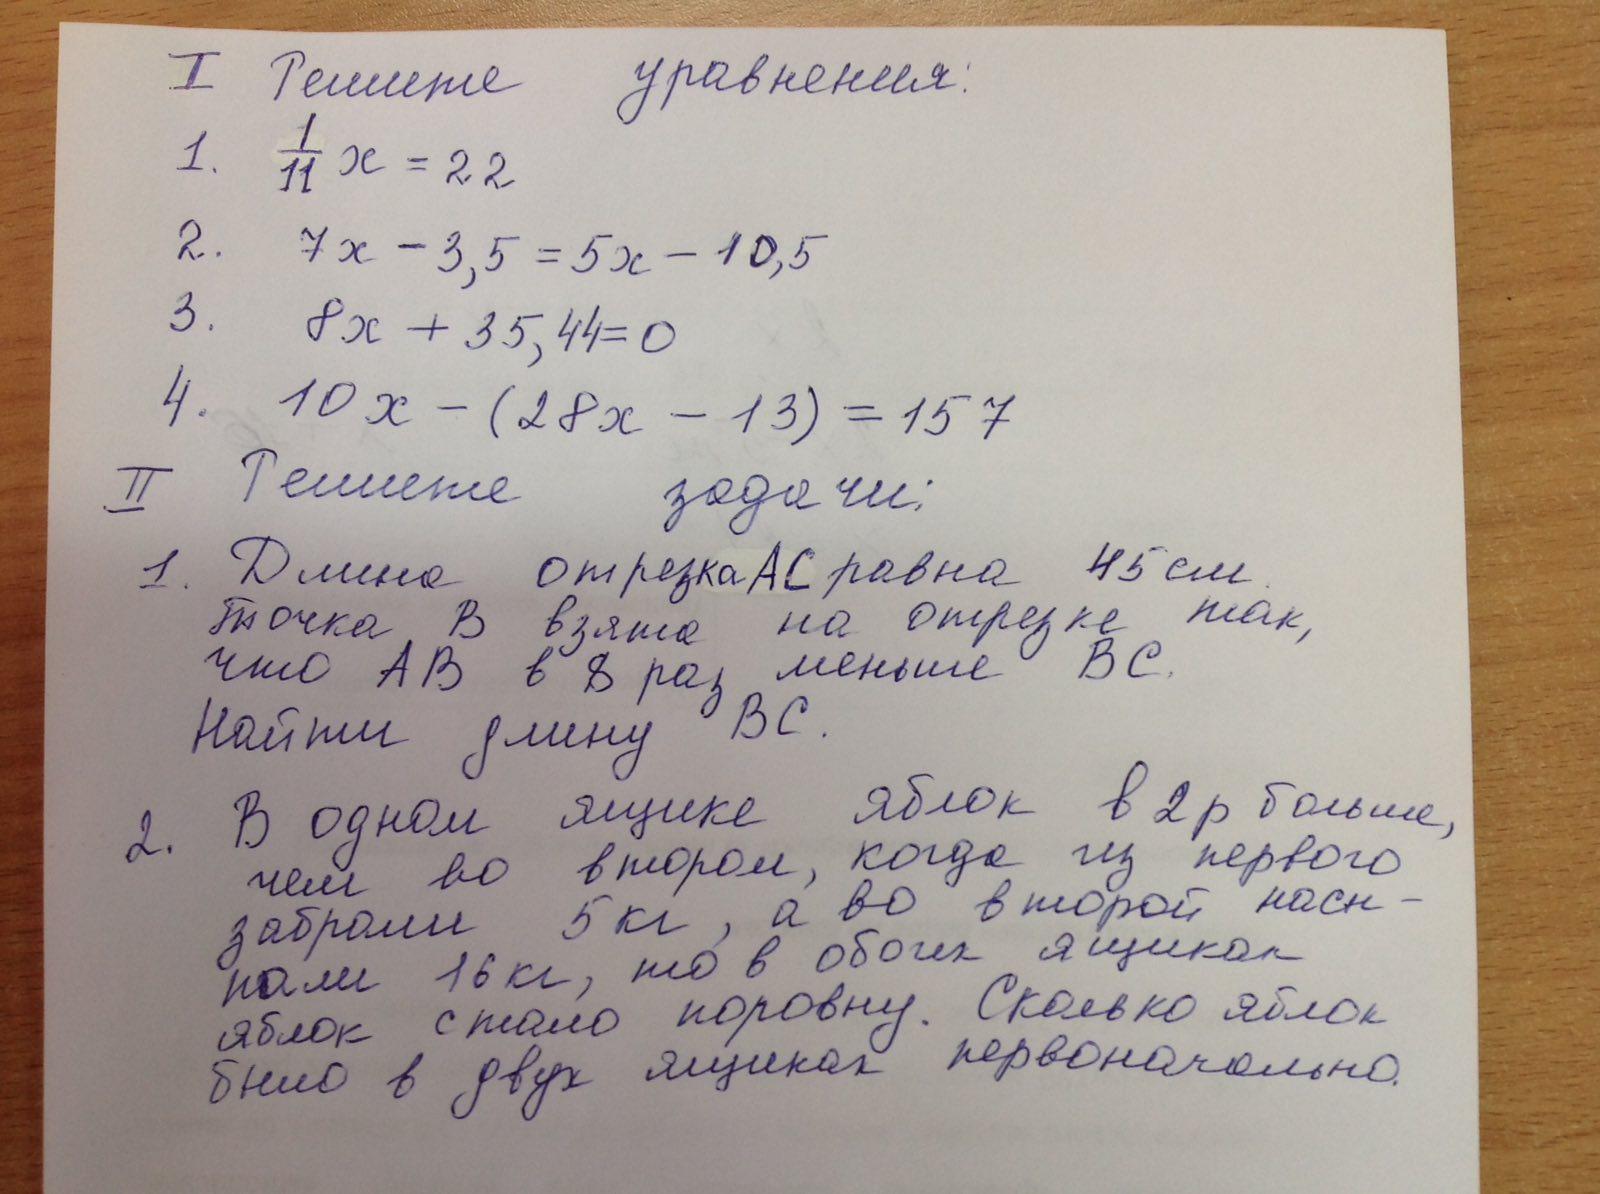 I Решите уравнения:
1. 1/11 x = 22
2. 7x - 3,5 = 5x - 10,5
3. 8x + 35,44 = 0
4. 10x - (28x - 13) = 157
II Решите задачи:
1. Длина отрезка AC равна 45 см.
Точка B взята на отрезке так,
что AB в 8 раз меньше BC.
Найти длину BC.
2. В одном ящике яблок в 2 р больше,
чем во втором, когда из первого
забрали 5 кг, а во второй насы-
пали 16 кг, то в обоих ящиках
яблок стало поровну. Сколько яблок
было в двух ящиках первоначально.